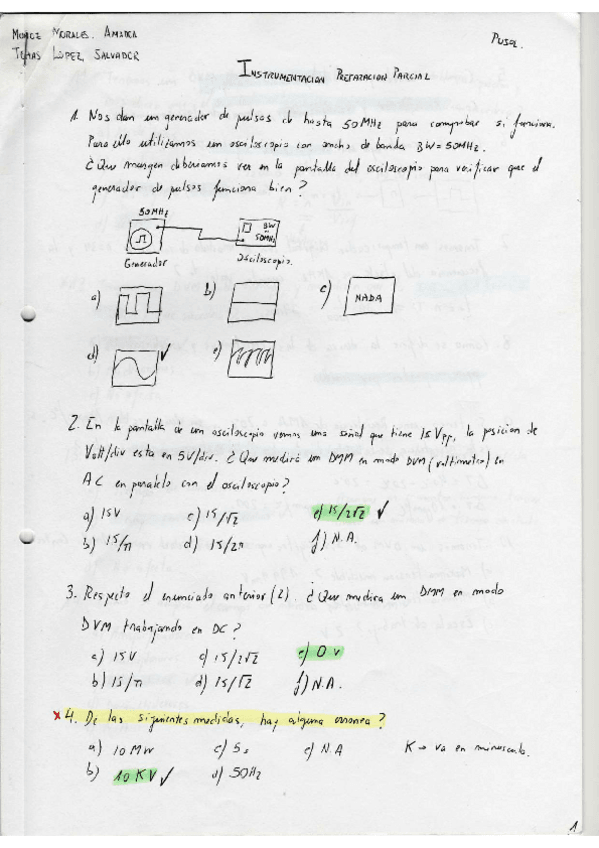 Muñoz Morales, Amanda
Tomas López, Salvador
Pusol.
INSTRUMENTACION PREPARACION PARCIAL
1. Nos dan un generador de pulsos de hasta 50MHz para comprobar si funciona.
Para ello utilizamos un osciloscopio con ancho de banda BW=50MHz.
¿Que margen deberiamos ver en la pantalla del osciloscopio para verificar que el
generador de pulsos funciona bien?
50MHz
BW
50MHz
Generador
Osciloscopio.
a)
b)
c) NADA
d) ✓
e)
2. En la pantalla de un osciloscopio vemos una señal que tiene 15Vpp, la posicion de
Volt/div esta en 5V/div. ¿Que medirá un DMM en modo DVM (voltimetro) en
AC en paralelo con el osciloscopio?
a) 15V c) 15/√2 e) 15/2√2 ✓
b) 15/π d) 15/2π f) N.A.
3. Respecto el enunciado anterior (2). ¿Que mediria un DMM en modo
DVM trabajando en DC?
a) 15V c) 15/2√2 e) 0 v
b) 15/π d) 15/√2 f) N.A.
x 4. De las siguientes medidas, hay alguna erronea?
a) 10 MW c) 5s e) N.A K → va en minuscula.
b) 10 KV ✓ d) 50Hz
1